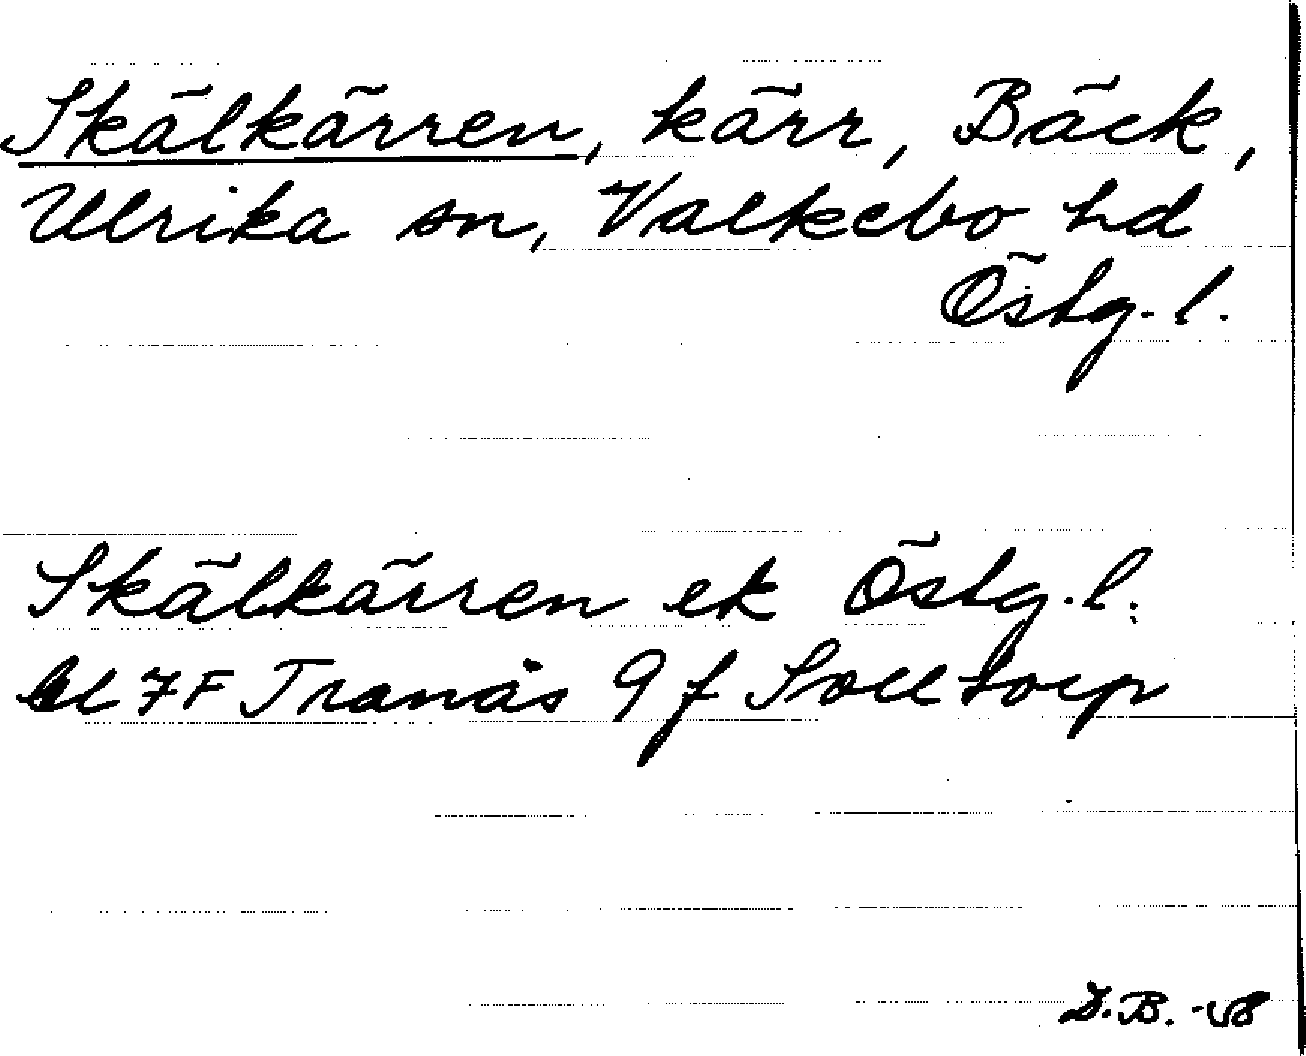 Skälkärren, kärr, Bäck,
Ulrika sn, Valkebo hd
Östg. l.
Skälkärren ek Östg. l.
bl 7F Tranås 9f Solltorp
D.B. -48